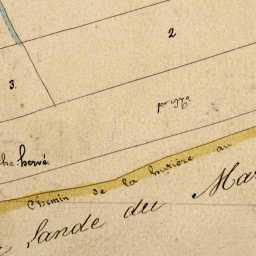 2
3.
hervé
Chemin de la hutière au
lande du Mar